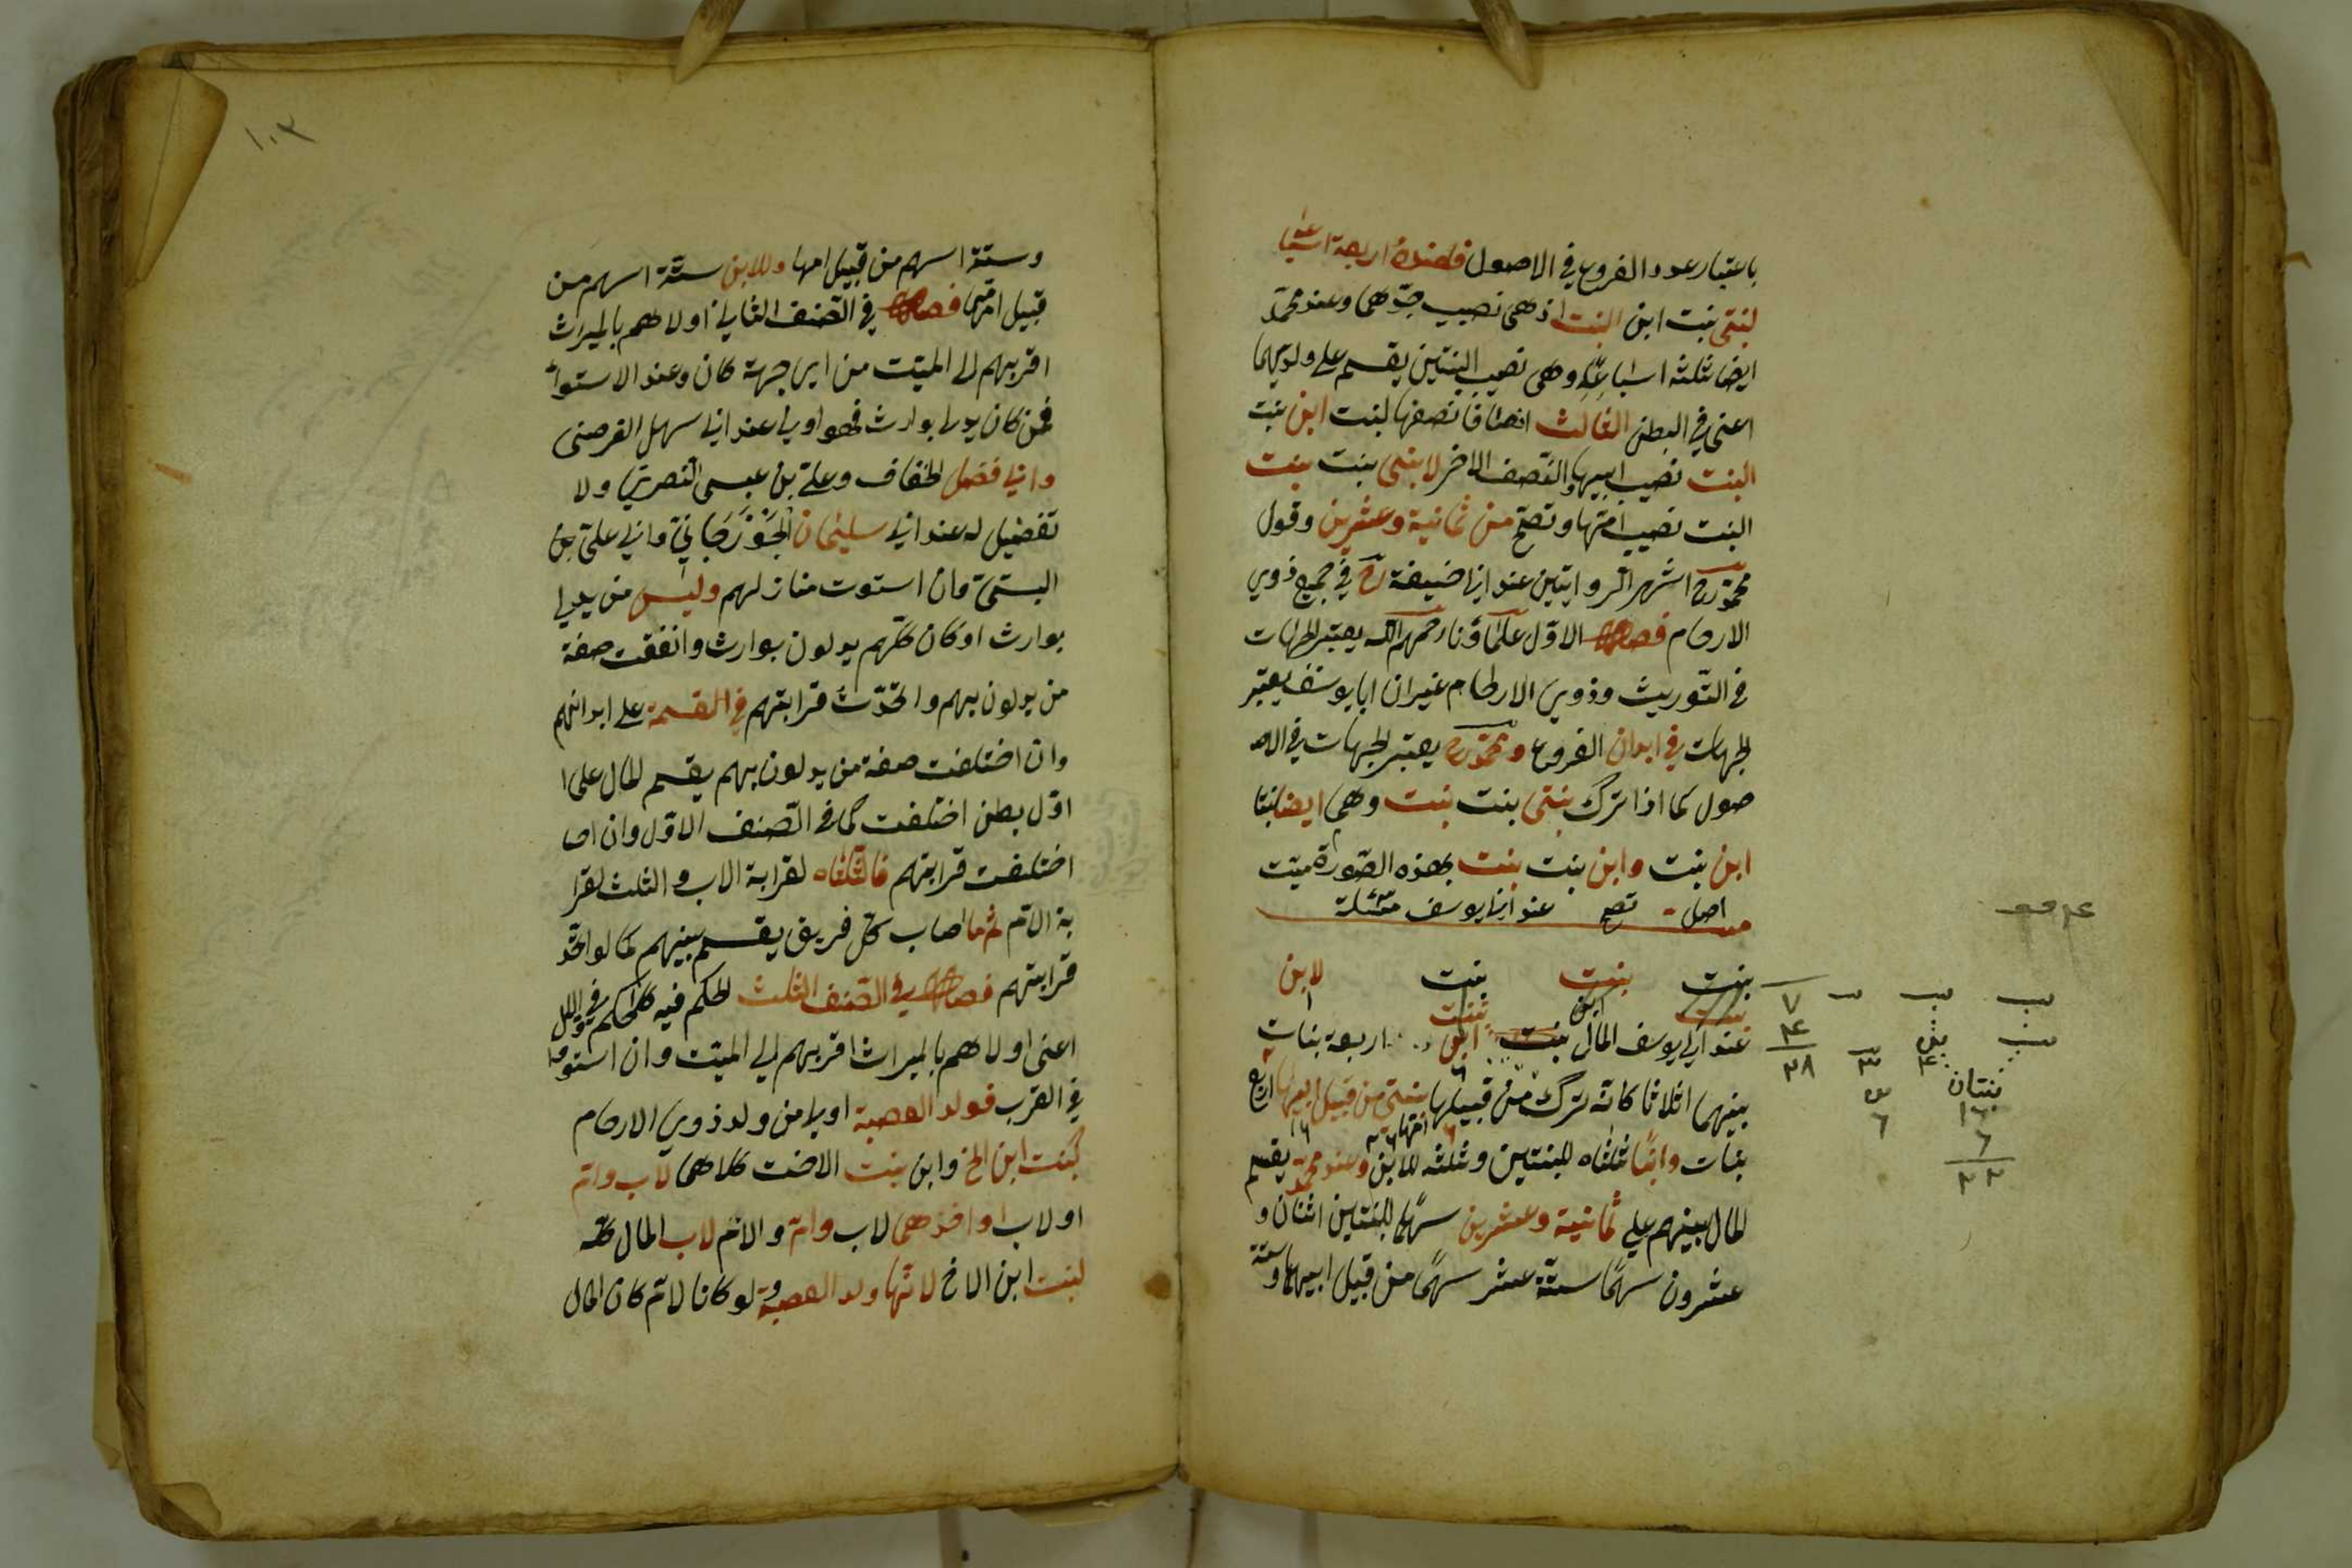 باعتبار عدد الفروع في الاصول فاعنده اربعة اسباعه
لبنتي بنت ابن البنت اذ هي نصيب جدّهما وعند محمّد
ايضا ثلثة اسباعه وهي نصيب البنتين يقسم على ولديهما
اعنى في البطن الثالث انصافا نصفها لبنت ابن بنت
البنت نصيب ابيها والنصف الاخر لابني بنت بنت
البنت نصيب امّها وتصحّ من ثمانية وعشرين وقول
محمّد رح اشهر الروايتين عند ابي حنيفة رح في جميع ذوي
الارحام فصل الاوّل علماؤنا رحمهم الله يعتبر الجهات
في التوريث وذوي الارحام غير ان ابا يوسف يعتبر
الجهات في ابدان الفروع ومحمّد رح يعتبر الجهات في الاصـ
صول كما اذا ترك بنتى بنت بنت وهى ايضا بنتا
ابن بنت وابن بنت بنت بهذه الصّورة ميّت
اصل تصح عند ابي يوسف مسئلة
بنت بنت بنت لابن
بنت ابن بنت
عند ابي يوسف المال بنت ابن اربعة بنات
بينهما اثلاثا كانّه ترك من قبيلها بنتي من قبيل ابيها اربع
بنات وابنًا ثلثاه للبنتين وثلثه للابن وعند محمّد يقسم
المال بينهم على ثمانية وعشرين سهمًا للبنتين اثنان و
عشرون سهمًا ستّة عشر سهمًا من قبيل ابيهما وستّة
بنتان
١٦
٦
٢٢
٧
٤
٢٨
٣
٦
١٠٣
وستّة اسهم من قبيل امها وللابن ستّة اسهم من
قبيل امّه فصل في الصّنف الثاني اولاهم بالميراث
اقربهم الى الميّت من اىّ جهة كان وعند الاستواء
فمن كان يدلى بوارث فهو اولى عند ابي سهل الفرضى
وابي فضل الخفاف وعلىّ بن عيسى البصريّ ولا
تفضيل له عند ابي سليمان الجوزجانيّ وابي علىّ بن
البستىّ وان استوت منازلهم وليس من يدلى
بوارث او كان كلّهم يدلون بوارث واتفقت صفة
من يدلون بهم واتّحدت قرابتهم في القسمة على ابدانهم
وان اختلفت صفة من يدلون بهم يقسم المال على
اوّل بطن اختلفت كما في الصّنف الاوّل وان
اختلفت قرابتهم فالثلثاه لقرابة الاب والثلث لقرا
بة الامّ ثم ما اصاب كلّ فريق يقسم بينهم كما لو اتّحد
قرابتهم فصل في الصّنف الثلث الحكم فيه كالحكم في الاول
اعنى اولاهم بالميراث اقربهم الى الميّت وان استووا
في القرب فولد العصبة اولى من ولد ذوي الارحام
كبنت ابن الاخ وابن بنت الاخت كلاهما لاب وامّ
او لاب او احدهما لاب وامّ والامّ لاب المال كلّه
لبنت ابن الاخ لانّها ولد العصبة ولو كانا لامّ كان المال